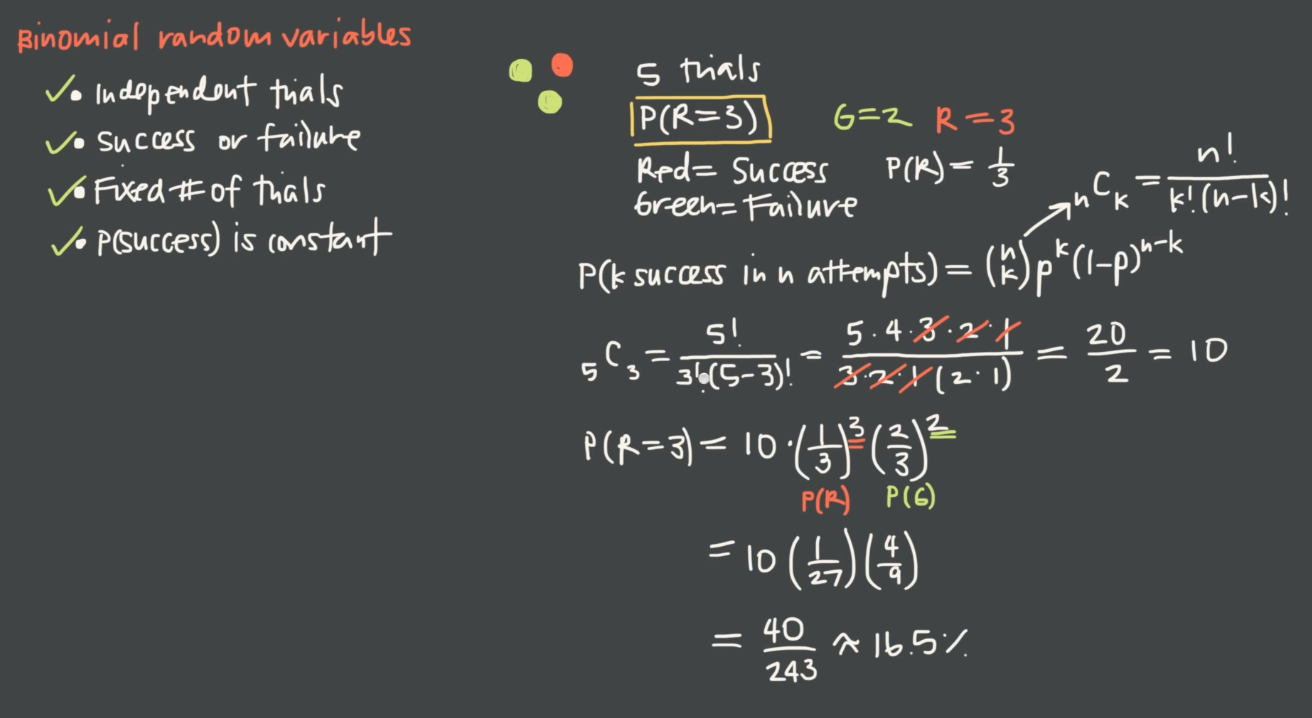 Binomial random variables
✓• Independent trials
✓• Success or failure
✓• Fixed # of trials
✓• P(success) is constant
5 trials
P(R=3) G=2 R=3
Red= Success P(R)= 1/3
Green= Failure
nCk = n!/k!(n-k)!
P(k success in n attempts) = (n k) p^k (1-p)^n-k
5C3 = 5!/3!(5-3)! = 5·4·3·2·1/3·2·1(2·1) = 20/2 = 10
P(R=3) = 10·(1/3)^3 (2/3)^2
P(R) P(G)
= 10(1/27)(4/9)
= 40/243 ≈ 16.5%